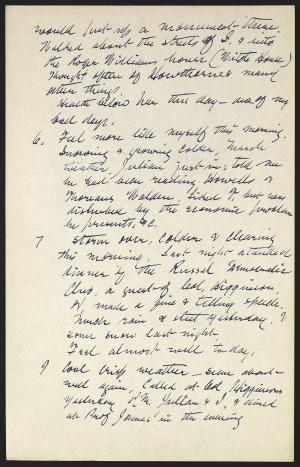 would put up a monument there.
Walked about the streets of S. & into
the Roger Williams house (Witch House)
Thought often of Hawthorne & many
other things.
Health below par this day - one of my
bad days.
6. Feel more like myself this morning.
Snowing & growing colder, March
weather, Julian just in; tells me
he had been reading Howells &
Thoreau's Walden. Liked T. but was
disturbed by the economic problem
he presents, &c.
7 Storm over, colder & clearing
this morning. Last night attended
dinner of the Russel Democratic
Club, a guest of Col. Higginson.
He made a fine & telling speech.
Much rain & sleet yesterday, &
some snow last night
Feel almost well to-day.
9 Cool crisp weather - am about
well again, Called at Col. Higginson's
yesterday P.M. Julian & I, & dined
at Prof James' in the evening